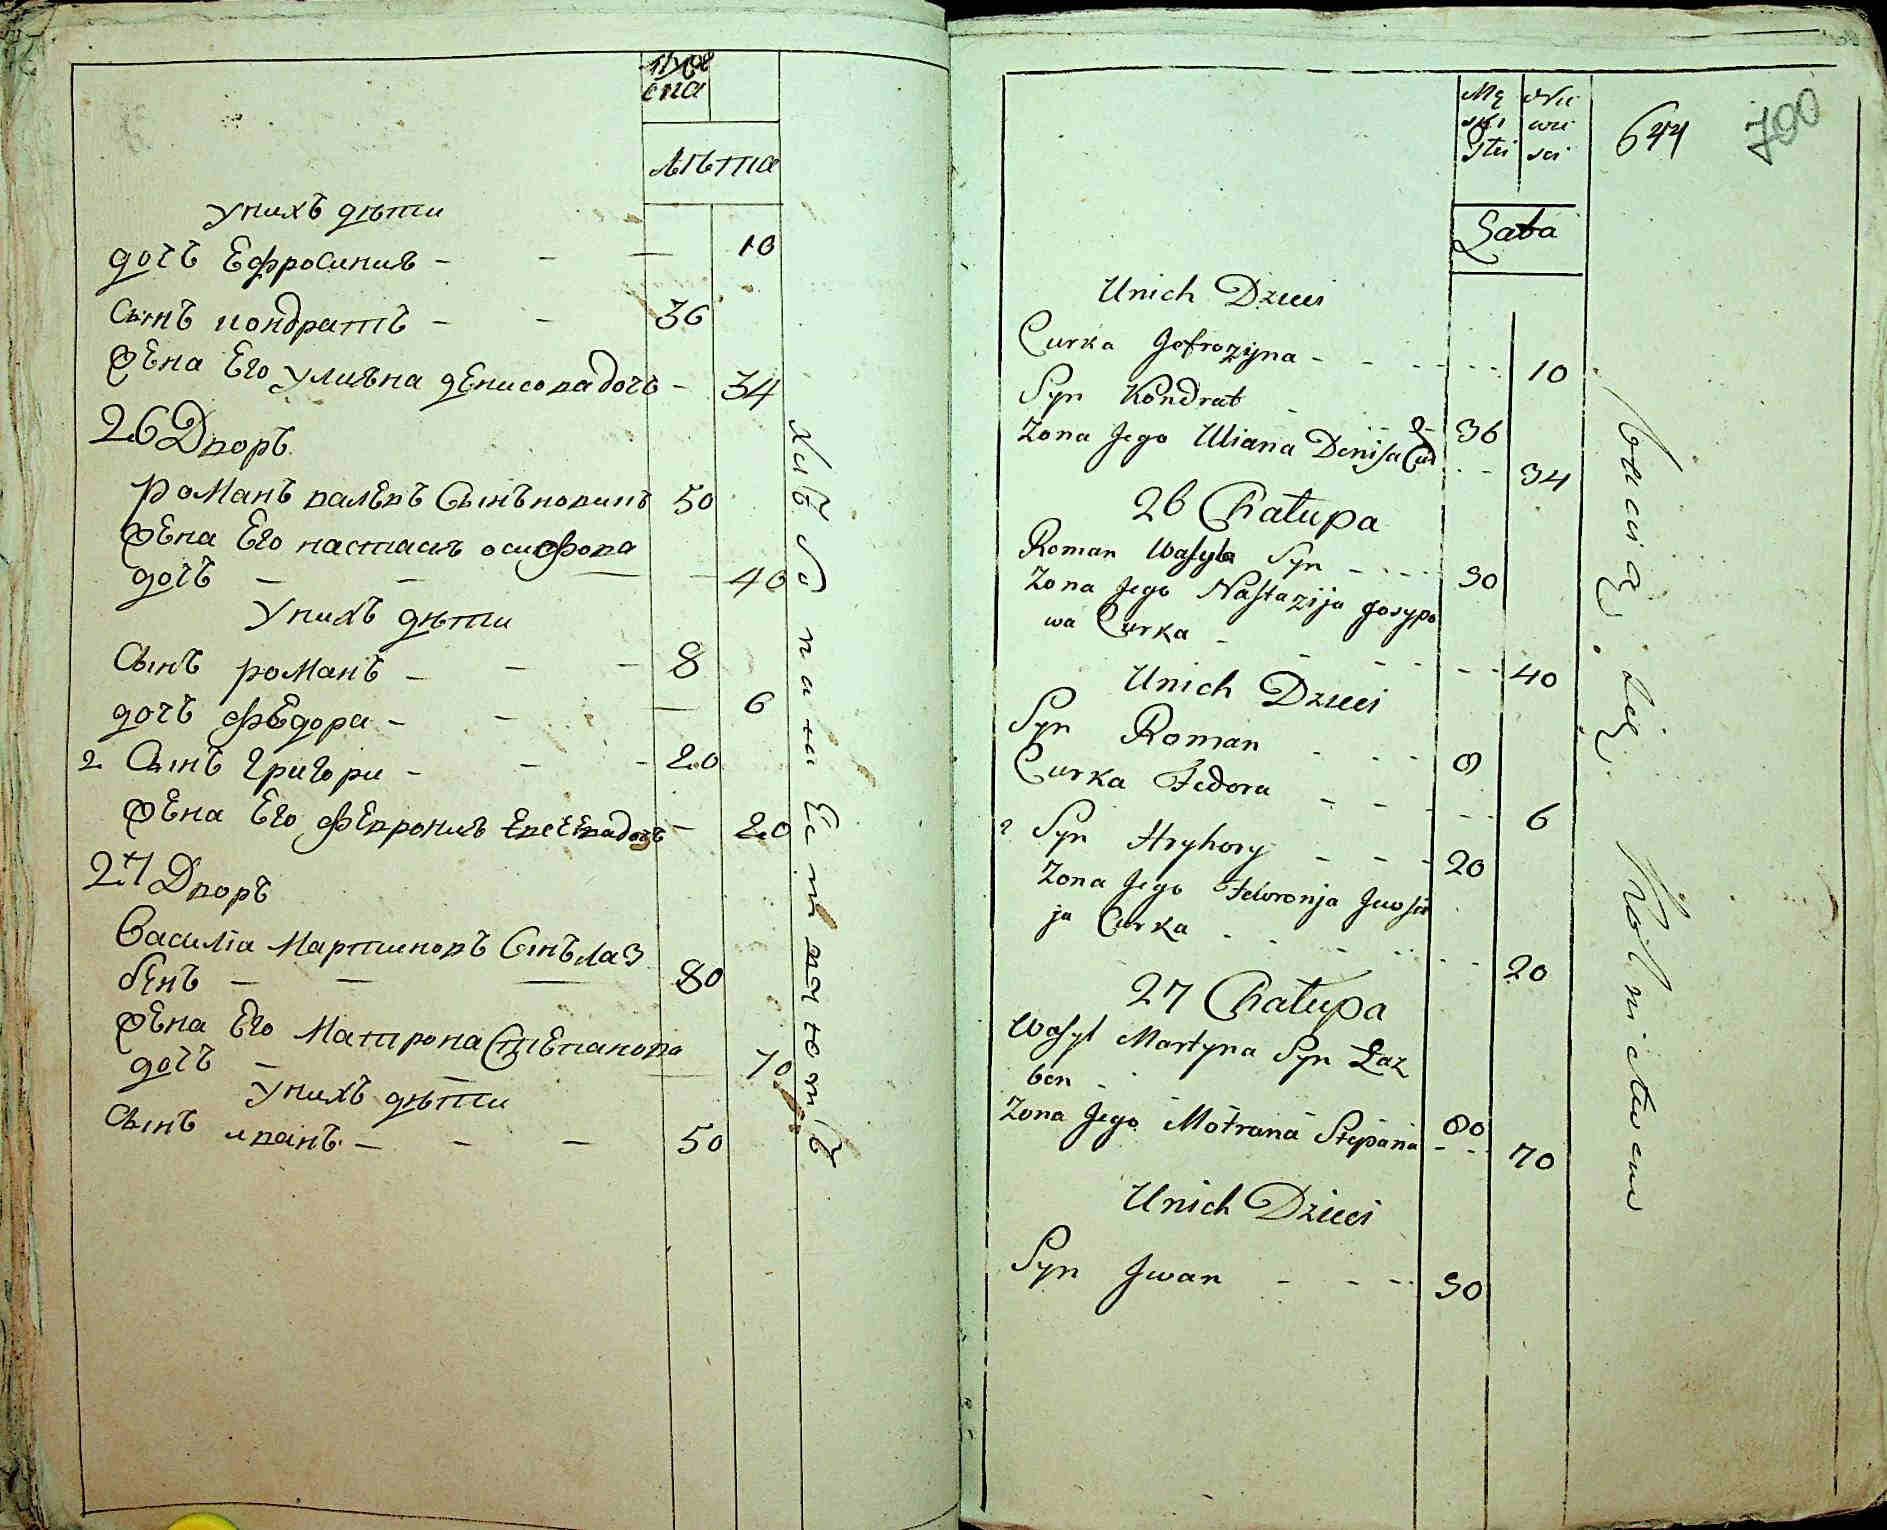 лѣта
У нихъ дѣти
дочъ Ефросиния - - — 10
Сынъ кондратъ - - 36
жена Его улияна денисова дочъ - 34
26 Дворъ
романъ валевъ Сынъ новикъ 50
жена Его настася осифова
дочъ — - — - 40
У нихъ дѣти
Сынъ романъ - - - 8
дочъ федора - - — 6
2 Сынъ григори - - - 20
жена Его феврония дочъ - 20
27 Дворъ
Василiа мартиновъ Снъ лаз
бенъ — — — 80
жена Его матрона Степанова
дочъ — — — 70
У нихъ дѣти
Сынъ иванъ - - - 50
хлѣбопашествомъ
Mę
ski
Nie
wie
sci
644
790
Lata
Unich Dzieci
Curka Jefrozyna - - - - - 10
Syn Kondrat - - - 36
Zona Jego Uliana Denisa Cur - - 34
26 Chałupa
Roman Wasyla Syn - - - - 50
Zona Jego Nastazija Josypo
wa Curka - - - - - - 40
Unich Dzieci
Syn Roman - - - 8
Curka Fedora - - - - - 6
2 Syn Hryhory - - - 20
Zona Jego Fewronja Jewsie
ja Curka - - - - - - 20
27 Chałupa
Wasyl Martyna Syn Łaz
ben - - - - 80
Zona Jego Motrana Stepana - - - 70
Unich Dzieci
Syn Jwan - - - - 50
bawią się Rolnictwem